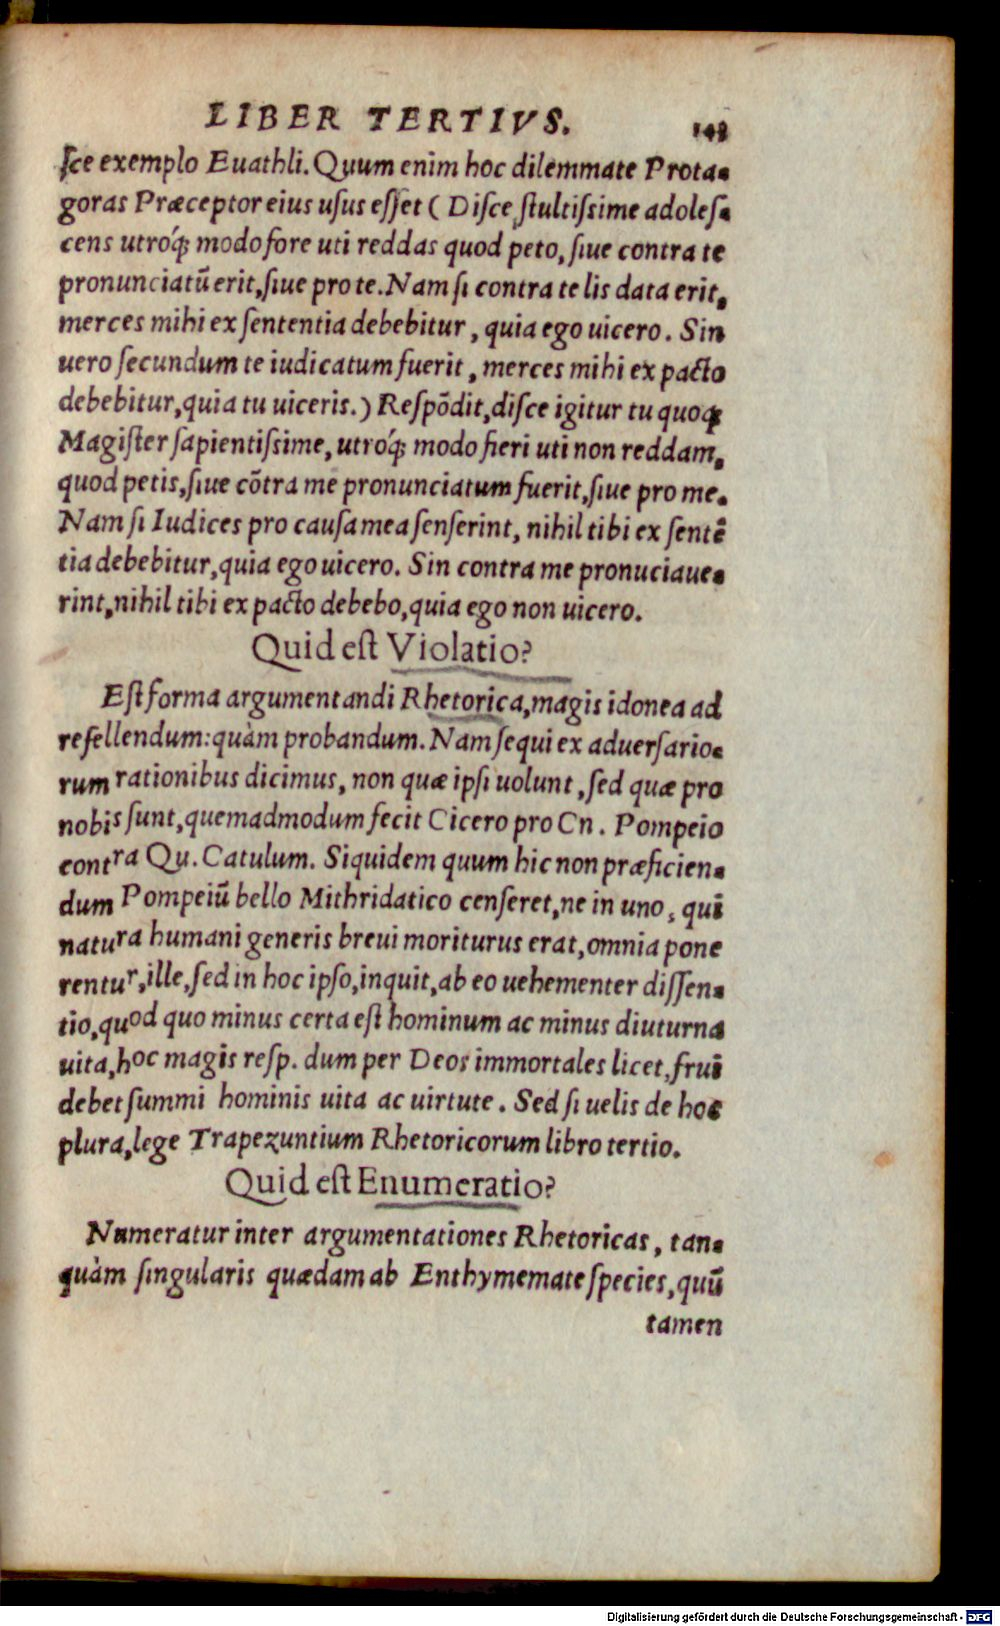 LIBER TERTIVS. 148
ſce exemplo Euathli. Quum enim hoc dilemmate Prota-
goras Præceptor eius uſus eſſet ( Diſce ſtultiſsime adoleſ-
cens utróq; modo fore uti reddas quod peto, ſiue contra te
pronunciatũ erit, ſiue pro te. Nam ſi contra te lis data erit,
merces mihi ex ſententia debebitur, quia ego uicero. Sin
uero ſecundum te iudicatum fuerit, merces mihi ex pacto
debebitur, quia tu uiceris.) Reſpõdit, diſce igitur tu quoq;
Magiſter ſapientiſsime, utróq; modo fieri uti non reddam,
quod petis, ſiue cõtra me pronunciatum fuerit, ſiue pro me.
Nam ſi Iudices pro cauſa mea ſenſerint, nihil tibi ex ſentẽ
tia debebitur, quia ego uicero. Sin contra me pronuciaue-
rint, nihil tibi ex pacto debebo, quia ego non uicero.
Quid eſt Violatio?
Eſt forma argumentandi Rhetorica, magis idonea ad
refellendum: quàm probandum. Nam ſequi ex aduerſario-
rum rationibus dicimus, non quæ ipſi uolunt, ſed quæ pro
nobis ſunt, quemadmodum fecit Cicero pro Cn. Pompeio
contra Qu. Catulum. Siquidem quum hic non præficien-
dum Pompeiũ bello Mithridatico cenſeret, ne in uno, qui
natura humani generis breui moriturus erat, omnia pone
rentur, ille, ſed in hoc ipſo, inquit, ab eo uehementer diſſen-
tio, quod quo minus certa eſt hominum ac minus diuturna
uita, hoc magis reſp. dum per Deos immortales licet, frui
debet ſummi hominis uita ac uirtute. Sed ſi uelis de hoc
plura, lege Trapezuntium Rhetoricorum libro tertio.
Quid eſt Enumeratio?
Numeratur inter argumentationes Rhetoricas, tan-
quàm ſingularis quædam ab Enthymemate ſpecies, quũ
tamen
Digitalisierung gefördert durch die Deutsche Forschungsgemeinschaft - DFG